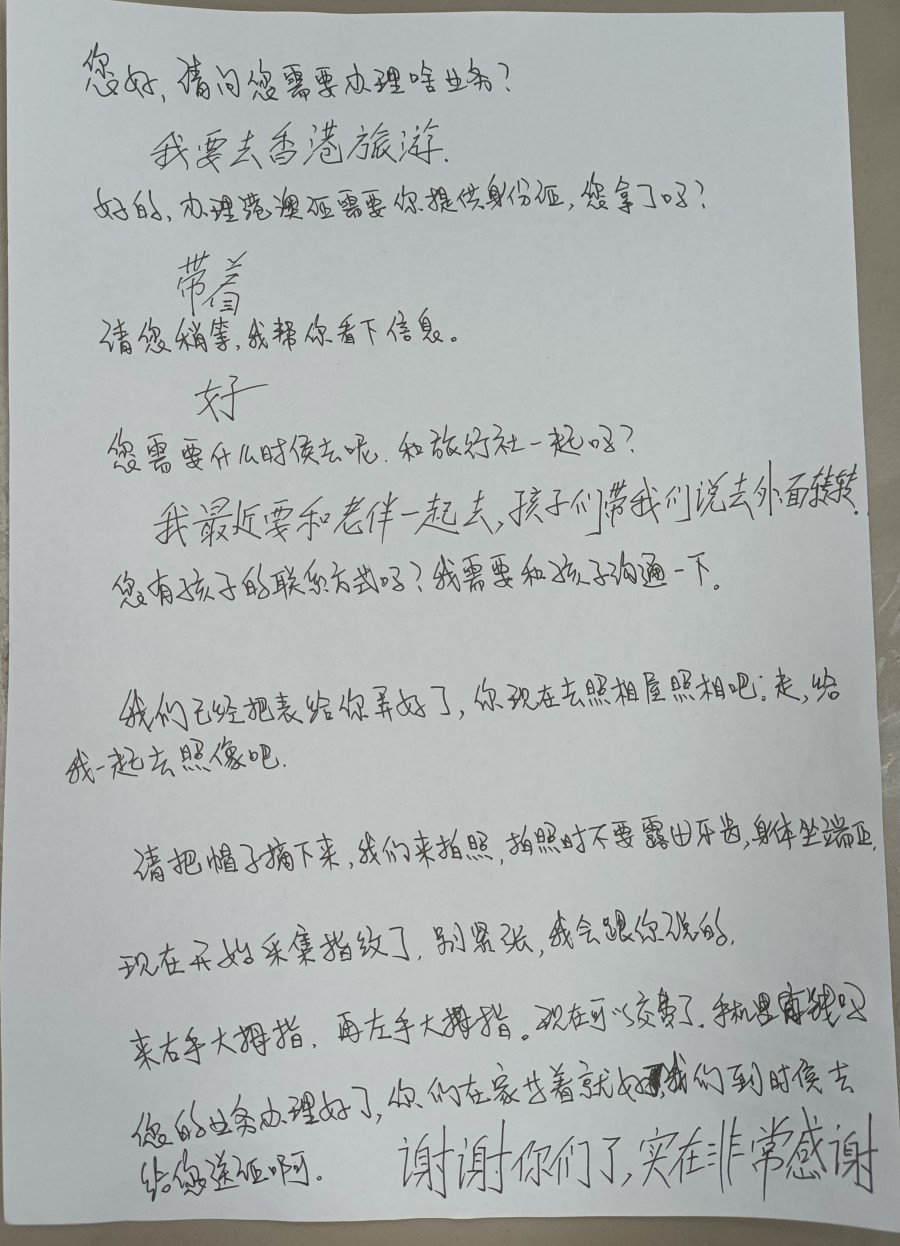 您好,请问您需要办理啥业务?
我要去香港旅游.
好的,办理港澳证需要你提供身份证,您拿了吗?
带着
请您稍等,我帮你看下信息。
好
您需要什么时侯去呢.和旅行社一起吗?
我最近要和老伴一起去,孩子们带我们说去外面转转.
您有孩子的联系方式吗?我需要和孩子沟通一下。
我们已经把表给你弄好了,你现在去照相屋照相吧;走,给
我一起去照像吧.
请把帽子摘下来,我们来拍照,拍照时不要露出牙齿,身体坐端正.
现在开始采集指纹了.别紧张,我会跟你说的.
来右手大拇指.再左手大拇指。现在可以交费了.手机里有钱吗
您的业务办理好了,你们在家等着就好,我们到时侯去
给您送证啊.
谢谢你们了,实在非常感谢